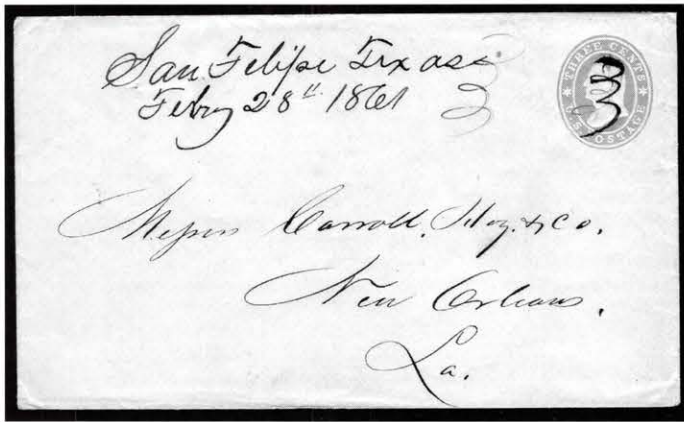 San Felipe Texas
Febry 28th 1861
THREE CENTS
U.S. POSTAGE
3
Messrs Carroll, Hoy & Co.
New Orleans,
La.